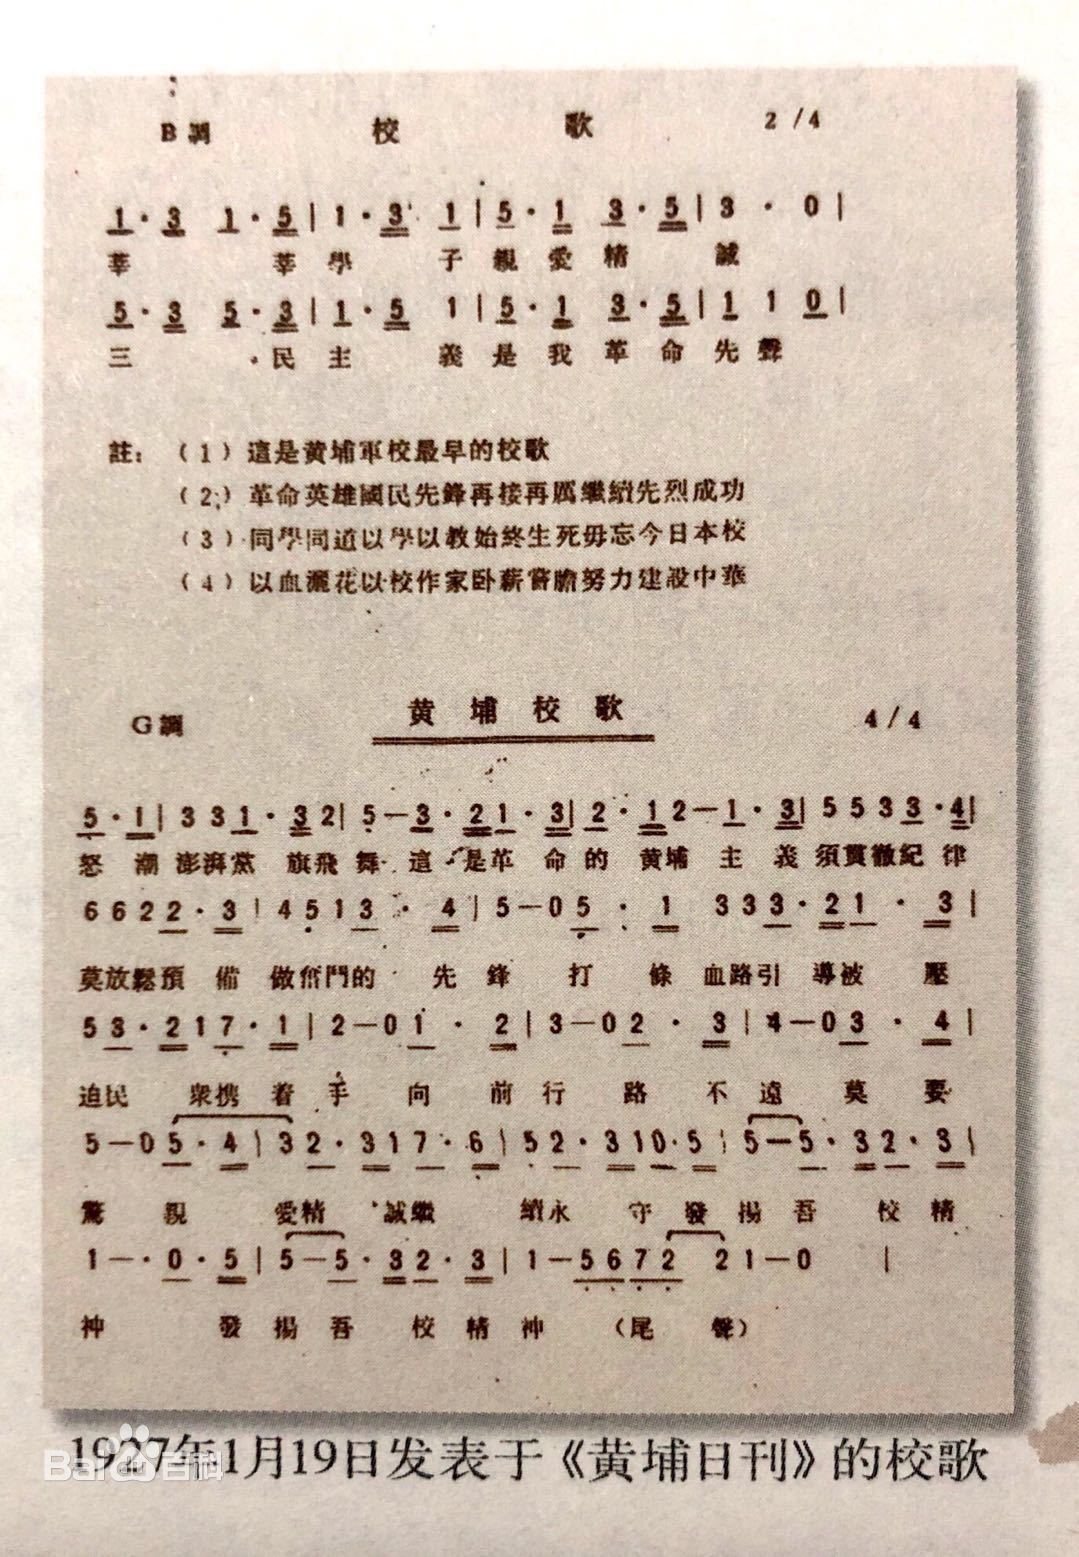 B調 校 歌 2/4
1·3 1·5|1·3 1|5·1 3·5|3·0|
莘 莘學 子親愛精 誠
5·3 5·3|1·5 1|5·1 3·5|1 1 0|
三 民主 義是我革命先聲
註：（1）這是黄埔軍校最早的校歌
（2）革命英雄國民先鋒再接再厲繼續先烈成功
（3）同學同道以學以教始終生死毋忘今日本校
（4）以血灑花以校作家卧薪嘗膽努力建設中華
G調 黄埔校歌 4/4
5·1|331·32|5—3·21·3|2·12—1·3|5533·4|
怒潮澎湃黨旗飛舞這是革命的黄埔主義須貫徹紀律
6622·3|4513·4|5—05·1 333·21·3|
莫放鬆預備做奮鬥的先鋒打條血路引導被壓
53·217·1|2—01·2|3—02·3|4—03·4|
迫民衆携着手向前行路不遠莫要
5—05·4|32·317·6|52·310·5|5—5·32·3|
驚親愛精誠繼續永守發揚吾校精
1—·0·5|5—5·32·3|1—5672 21—0 |
神 發揚吾校精神（尾聲）
1927年1月19日发表于《黄埔日刊》的校歌
Bai百科